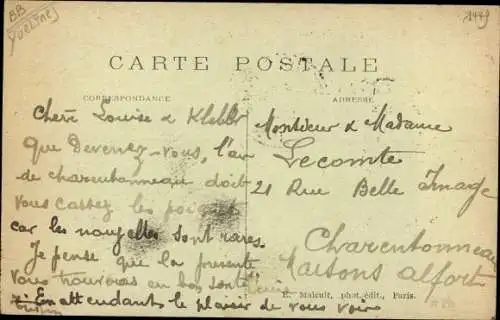 BB
Yvelines
1449
CARTE POSTALE
CORRESPONDANCE
ADRESSE
Cheré Louise & Kleber
Que Devenez-Vous, l'air
de charentonneau doit
vous cassez les poignets
car les nouvelles sont rares
Je pense que la presente
vous trouveras en bon santé
En attendant le plaisir de vous voir
Monsieur & Madame
Lecomte
21 Rue Belle Image
Charentonneau
Maisons alfort
E. Malcuit, phot.édit., Paris.